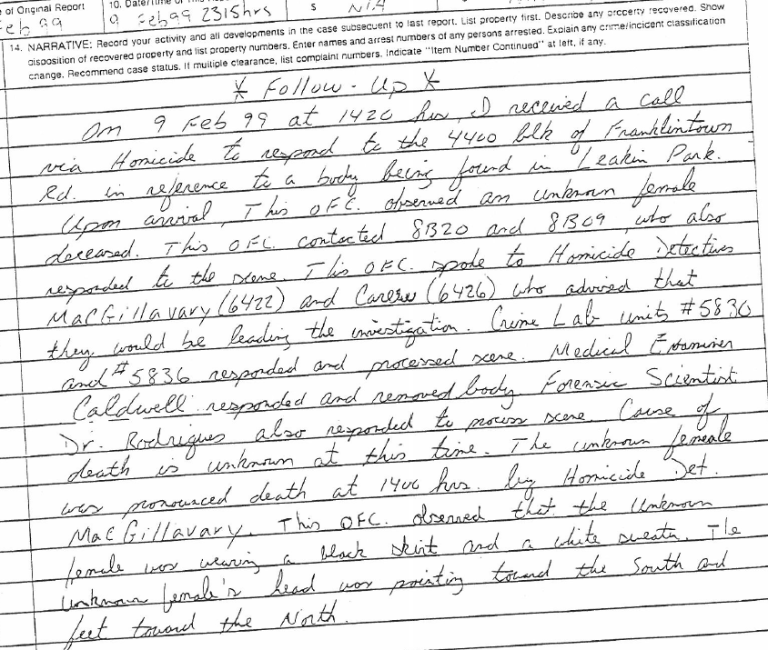 e of Original Report
10. Date/Time of
eb 99
9 Feb 99 2315hrs
S
N/A
14. NARRATIVE: Record your activity and all developments in the case subsequent to last report. List property first. Describe any property recovered. Show
disposition of recovered property and list property numbers. Enter names and arrest numbers of any persons arrested. Explain any crime/incident classification
change. Recommend case status. If multiple clearance, list complaint numbers. Indicate "Item Number Continued" at left, if any.
* Follow-Up *
On 9 Feb 99 at 1420 hrs, I received a call
via Homicide to respond to the 4400 blk of Franklintown
Rd. in reference to a body being found in Leakin Park.
Upon arrival, This OFC. observed an unknown female
deceased. This OFC. contacted 8B20 and 8B09, who also
responded to the scene. This OFC. spoke to Homicide Detectives
MacGillavary (6422) and Carew (6426) who advised that
they would be leading the investigation. Crime Lab units #5830
and #5836 responded and processed scene. Medical Examiner
Caldwell responded and removed body. Forensic Scientist
Dr. Rodrigues also responded to process scene. Cause of
death is unknown at this time. The unknown female
was pronounced death at 1400 hrs. by Homicide Det.
MacGillavary. This OFC. observed that the Unknown
female was wearing a black skirt and a white sweater. The
unknown female's head was pointing toward the South and
feet toward the North.